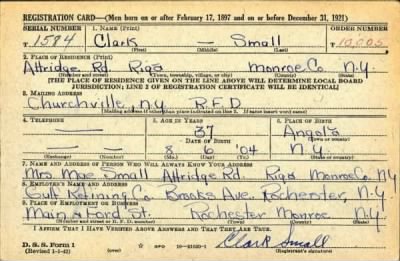 REGISTRATION CARD—(Men born on or after February 17, 1897 and on or before December 31, 1921)
SERIAL NUMBER 1. NAME (Print) ORDER NUMBER
T 1584 Clark — Small T 10,005
(First) (Middle) (Last)
2. PLACE OF RESIDENCE (Print)
Attridge Rd. Riga Monroe Co N.Y.
(Number and street) (Town, township, village, or city) (County) (State)
[THE PLACE OF RESIDENCE GIVEN ON THE LINE ABOVE WILL DETERMINE LOCAL BOARD
JURISDICTION; LINE 2 OF REGISTRATION CERTIFICATE WILL BE IDENTICAL]
3. MAILING ADDRESS
Churchville, n.y. R.F.D
[Mailing address if other than place indicated on line 2. If same insert word same]
4. TELEPHONE 5. AGE IN YEARS 6. PLACE OF BIRTH
— — 37 Angola
DATE OF BIRTH (Town or county)
— — 8 6 '04 N.Y.
(Exchange) (Number) (Mo.) (Day) (Yr.) (State or country)
7. NAME AND ADDRESS OF PERSON WHO WILL ALWAYS KNOW YOUR ADDRESS
Mrs Mae Small Attridge Rd Riga Monroe Co. N.Y
8. EMPLOYER'S NAME AND ADDRESS
Gulf Refining Co. Brooks Ave. Rochester, N.Y.
9. PLACE OF EMPLOYMENT OR BUSINESS
Main & Ford St. Rochester Monroe N.Y.
(Number and street or R. F. D. number) (Town) (County) (State)
I AFFIRM THAT I HAVE VERIFIED ABOVE ANSWERS AND THAT THEY ARE TRUE.
D. S. S. Form 1 GPO
(Revised 1-1-42) Clark Small
(Registrant's signature)